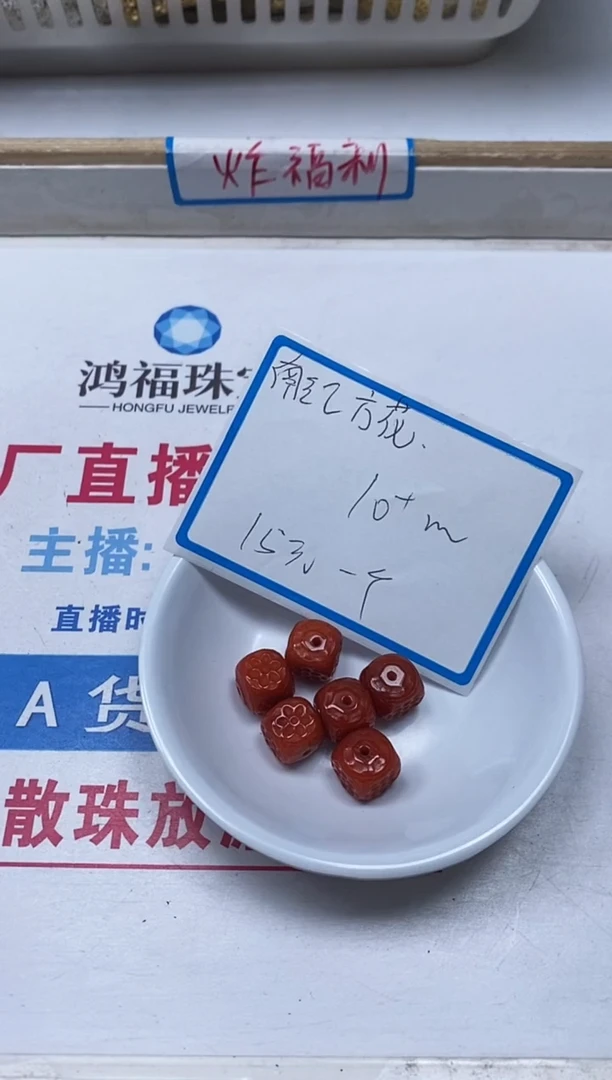 炸福利
鸿福珠
HONGFU JEWELR
厂直播
主播:
直播时
A 货
散珠放
南红方花.
10+m
153、一个